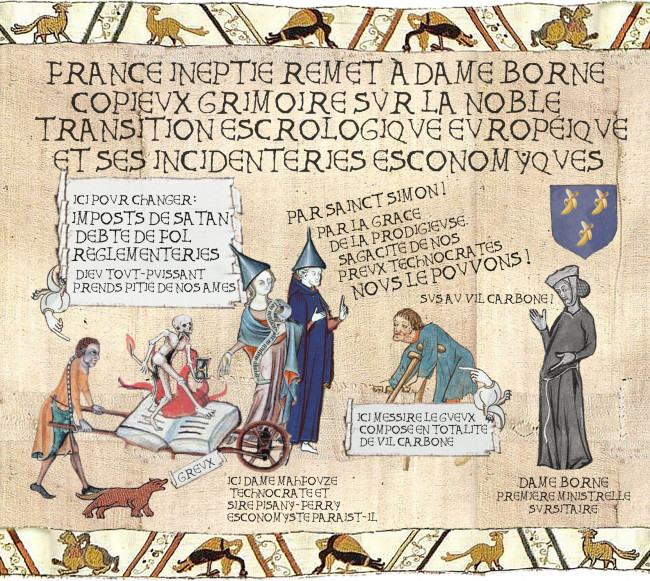 FRANCE INEPTIE REMET À DAME BORNE
COPIEVX GRIMOIRE SVR LA NOBLE
TRANSITION ESCROLOGIQVE EVROPÉIQVE
ET SES INCIDENTERIES ESCONOMYQVES
ICI POVR CHANGER:
IMPOSTS DE SATAN
DEBTE DE FOL
REGLEMENTERIES
DIEV TOVT-PVISSANT
PRENDS PITIE DE NOS AMES
PAR SAINCT SIMON!
PAR LA GRACE
DE LA PRODIGIEVSE
SAGACITE DE NOS
PREVX TECHNOCRATES
NOVS LE POVVONS!
SVS AV VIL CARBONE!
ICI MESSIRE LE GVEVX
COMPOSE EN TOTALITE
DE VIL CARBONE
GREVX
ICI DAME MAHFOVZE
TECHNOCRATE ET
SIRE PISANY-FERRY
ESCONOMYSTE PARAIST-IL
DAME BORNE
PREMIERE MINISTRELLE
SVRSITAIRE